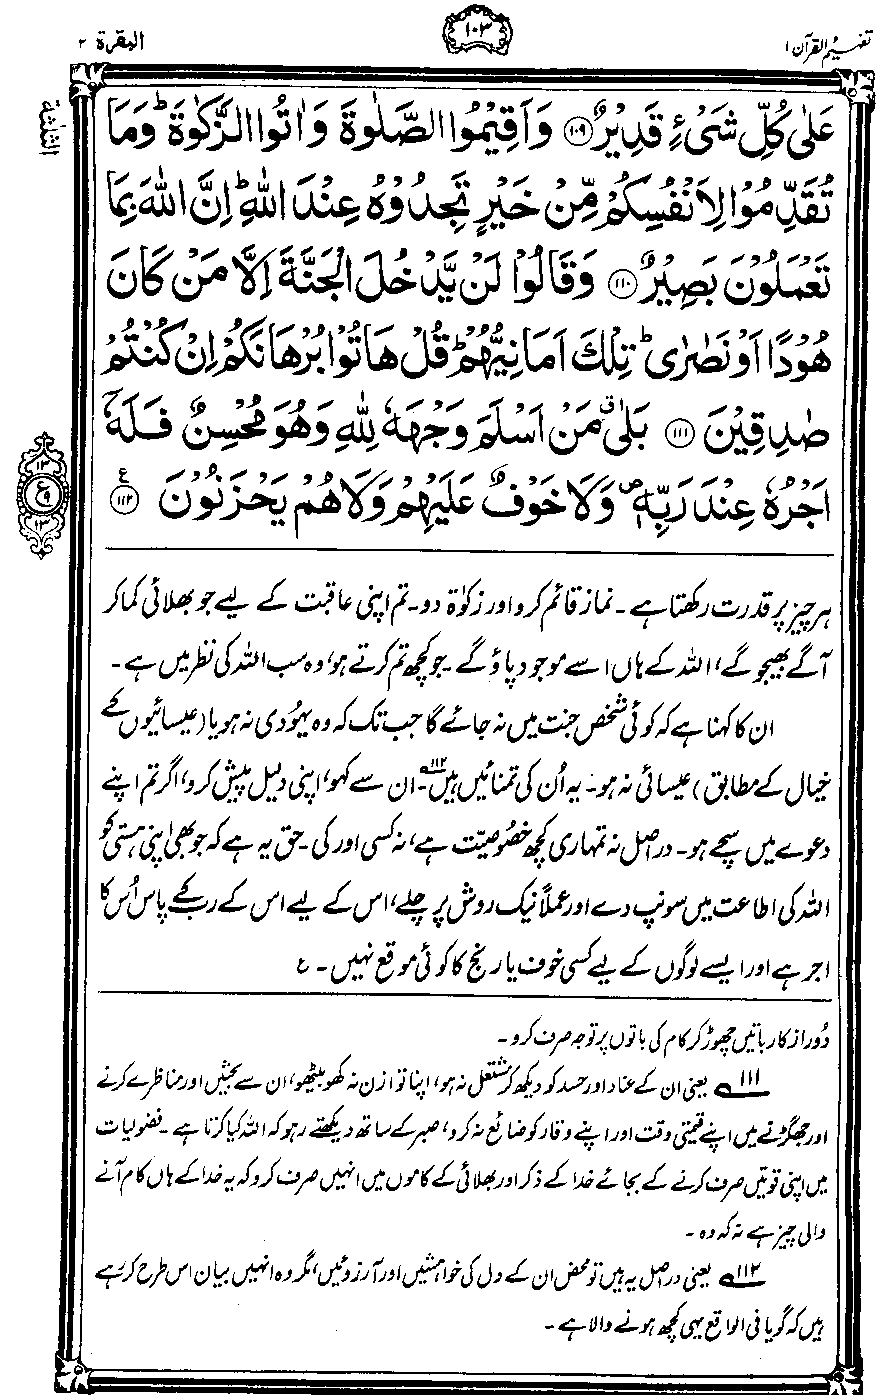 تفہیم القرآن ۱
۱۰۳
البقرة ۲
عَلٰى كُلِّ شَىْءٍ قَدِيْرٌ ﴿۱۰۹﴾ وَاَقِيْمُوا الصَّلٰوةَ وَاٰتُوا الزَّكٰوةَ ؕ وَمَا
تُقَدِّمُوْا لِاَنْفُسِكُمْ مِّنْ خَيْرٍ تَجِدُوْهُ عِنْدَ اللّٰهِ ؕ اِنَّ اللّٰهَ بِمَا
تَعْمَلُوْنَ بَصِيْرٌ ﴿۱۱۰﴾ وَقَالُوْا لَنْ يَّدْخُلَ الْجَنَّةَ اِلَّا مَنْ كَانَ
هُوْدًا اَوْ نَصٰرٰى ؕ تِلْكَ اَمَانِيُّهُمْ ؕ قُلْ هَاتُوْا بُرْهَانَكُمْ اِنْ كُنْتُمْ
صٰدِقِيْنَ ﴿۱۱۱﴾ بَلٰى ۚ مَنْ اَسْلَمَ وَجْهَهٗ لِلّٰهِ وَهُوَ مُحْسِنٌ فَلَهٗٓ
اَجْرُهٗ عِنْدَ رَبِّهٖ ۪ وَلَا خَوْفٌ عَلَيْهِمْ وَلَا هُمْ يَحْزَنُوْنَ ﴿۱۱۲﴾ ع
۱۳
ع ۹
۱۳
ہر چیز پر قدرت رکھتا ہے۔ نماز قائم کرو اور زکوٰۃ دو۔ تم اپنی عاقبت کے لیے جو بھلائی کما کر
آگے بھیجو گے، اللہ کے ہاں اسے موجود پاؤ گے۔ جو کچھ تم کرتے ہو، وہ سب اللہ کی نظر میں ہے۔
ان کا کہنا ہے کہ کوئی شخص جنت میں نہ جائے گا جب تک کہ وہ یہودی نہ ہو یا (عیسائیوں کے
خیال کے مطابق) عیسائی نہ ہو۔ یہ اُن کی تمنائیں ہیں۱۱۲۔ ان سے کہو، اپنی دلیل پیش کرو، اگر تم اپنے
دعوے میں سچے ہو۔ دراصل نہ تمہاری کچھ خصُوصیّت ہے، نہ کسی اور کی۔ حق یہ ہے کہ جو بھی اپنی ہستی کو
اللہ کی اطاعت میں سونپ دے اور عملاً نیک روش پر چلے، اس کے لیے اس کے رب کے پاس اُس کا
اجر ہے اور ایسے لوگوں کے لیے کسی خوف یا رنج کا کوئی موقع نہیں۔ ع
دُور از کار باتیں چھوڑ کر کام کی باتوں پر توجہ صرف کرو۔
۱۱۱ یعنی ان کے عناد اور حسد کو دیکھ کر مشتعل نہ ہو، اپنا توازن نہ کھو بیٹھو، ان سے بحثیں اور مناظرے کرنے
اور جھگڑنے میں اپنے قیمتی وقت اور اپنے وقار کو ضائع نہ کرو، صبر کے ساتھ دیکھتے رہو کہ اللہ کیا کرتا ہے۔ فضولیات
میں اپنی قوتیں صرف کرنے کے بجائے خدا کے ذکر اور بھلائی کے کاموں میں انہیں صرف کرو کہ یہ خدا کے ہاں کام آنے
والی چیز ہے نہ کہ وہ۔
۱۱۲ یعنی دراصل یہ ہیں تو محض ان کے دل کی خواہشیں اور آرزوئیں، مگر وہ انہیں بیان اس طرح کر رہے
ہیں کہ گویا فی الواقع یہی کچھ ہونے والا ہے۔